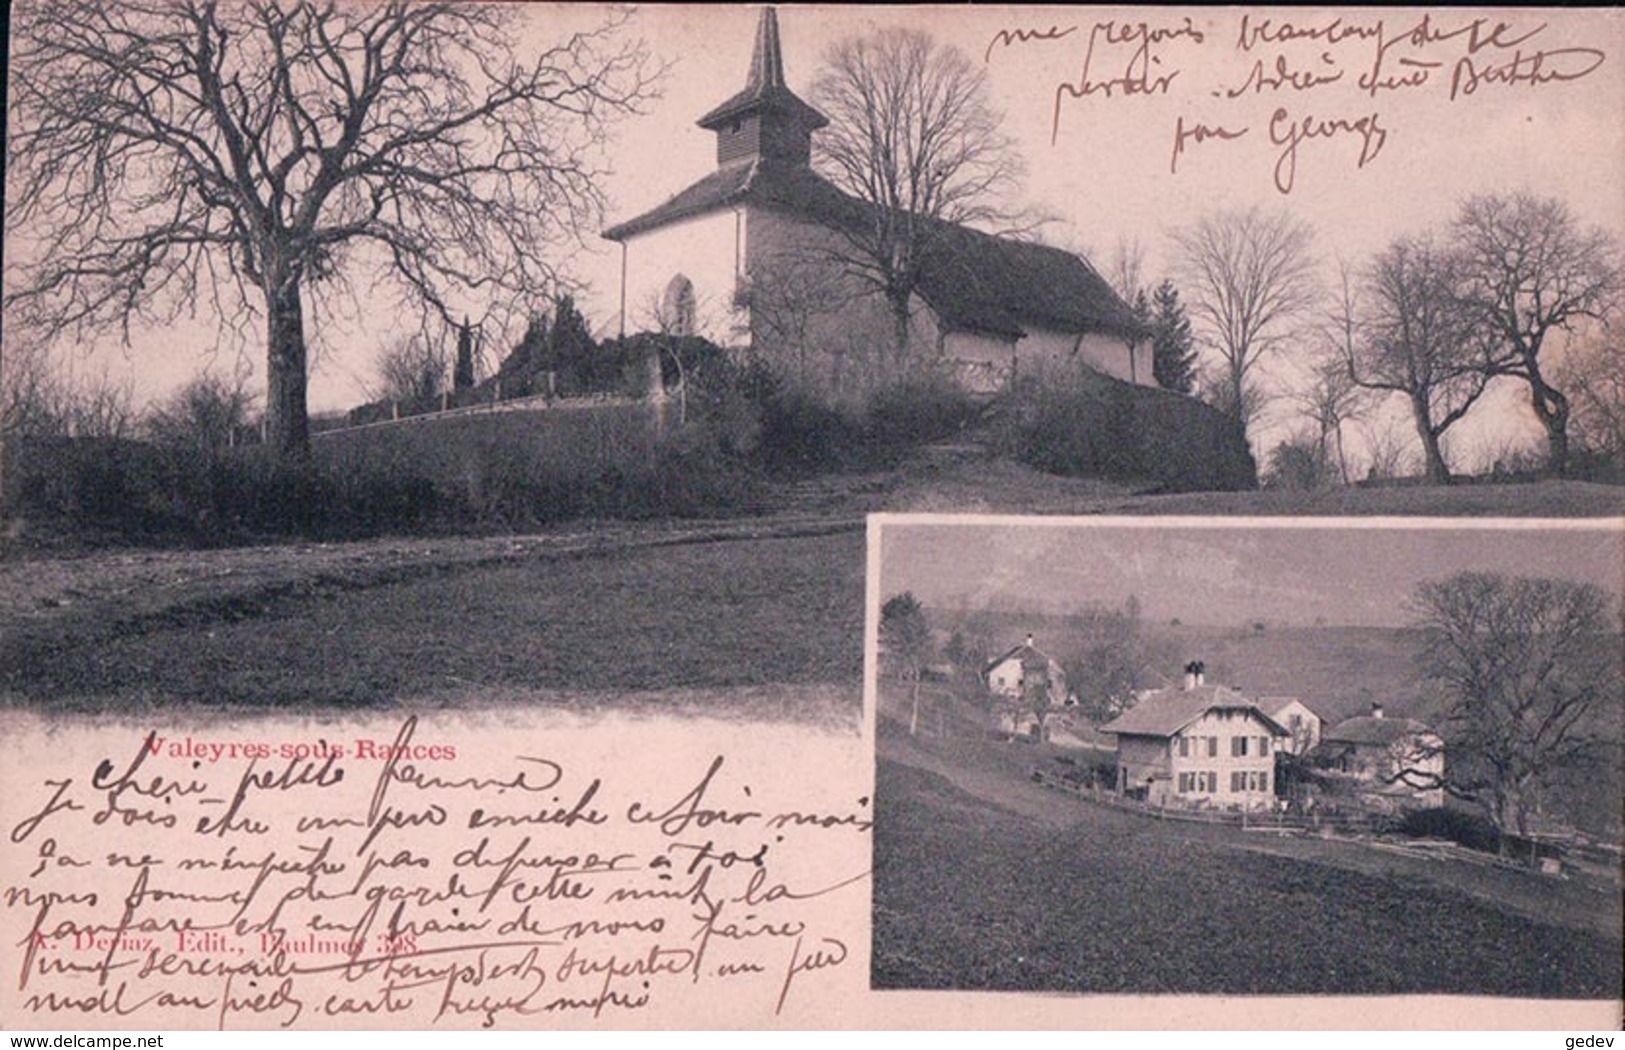 me rejouis beaucoup de te
revoir. Adieu chère Berthe
ton Georges
Valeyres-sous-Rances
chèri petite femme
Je dois être un peu ce soir mais
ça ne m'enpêche pas de penser à toi
nous sommes de garde cette nuit, la
fanfare est en train de nous faire
A. Deriaz, Édit., Baulmes 398.
une serenade le temps est superbe, un peu
mal au pieds. carte reçue merci
gedev